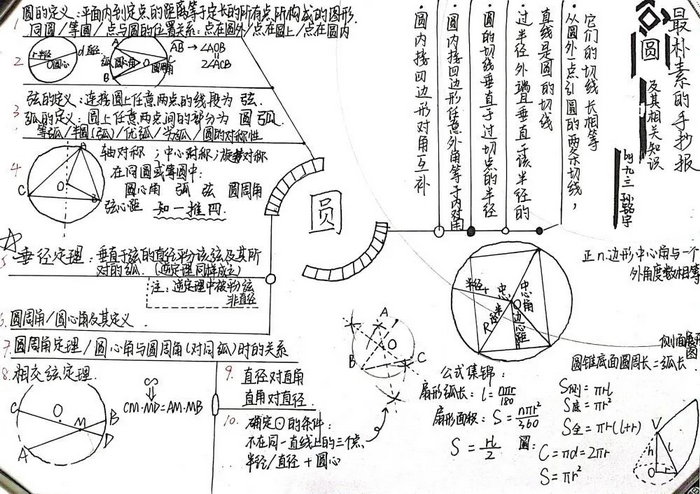 圆的定义:平面内到定点的距离等于定长的所有点所构成的图形.
同圆/等圆/点与圆的位置关系:点在圆外/点在圆上/点在圆内
2
半径
圆心
d直径
圆心角
AB → ∠AOB
∠AOB
A
B
3 弦的定义:连接圆上任意两点的线段为 弦.
弧的定义:圆上任意两点间的部分为 圆弧.
等弧/半圆(弧)/优弧/劣弧/圆的对称性
4 轴对称;中心对称;旋转对称
在同圆或等圆中:
圆心角 弧 弦 圆周角
弦心距 知一推四.
A
O
C
B
5 垂径定理:垂直于弦的直径平分该弦及其所
对的弧. (逆定理同样成立)
注:逆定理中被平分弦
非直径
6. 圆周角/圆心角及其定义.
7 圆周角定理/圆心角与圆周角(对同弧)时的关系
8. 相交弦定理.
CM·MD=AM·MB
C
O
B
M
A
D
9. 直径对直角
直角对直径.
10. 确定⊙的条件:
不在同一直线上的三个点,
半径/直径 + 圆心
圆
最朴素的手抄报
圆
及其相关知识
by 九三
从圆外一点引圆的两条切线,
它们的切线长相等
过半径外端且垂直于该半径的
直线是圆的切线
圆的切线垂直于过切点的半径
圆内接四边形任意外角等于内对角
圆内接四边形对角互补
正n边形中心角与一个
外角度数相等
半径r
中心
中心角
O
R
边心距
A
B
C
公式集锦:
扇形弧长: l = nπr/180
扇形面积: S = nπr²/360
S = rl/2
圆:
C = πd = 2πr
S = πr²
侧面展开图
圆锥底面圆周长=弧长.
S侧 = πrl
S底 = πr²
S全 = πr(l+r)
V
h
l
O
r